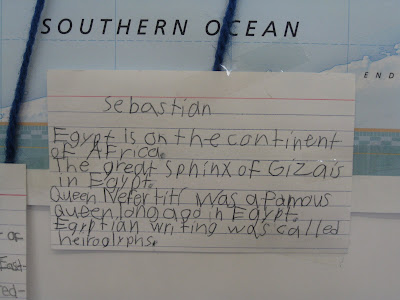 SOUTHERN OCEAN
END
Sebastian
Egypt is on the continent
of Africa.
The great sphinx of Giza is
in Egypt.
Queen Nefertiti was a famous
queen long ago in Egypt.
Egyptian writing was called
heiroglyphs.
of
East-
red-